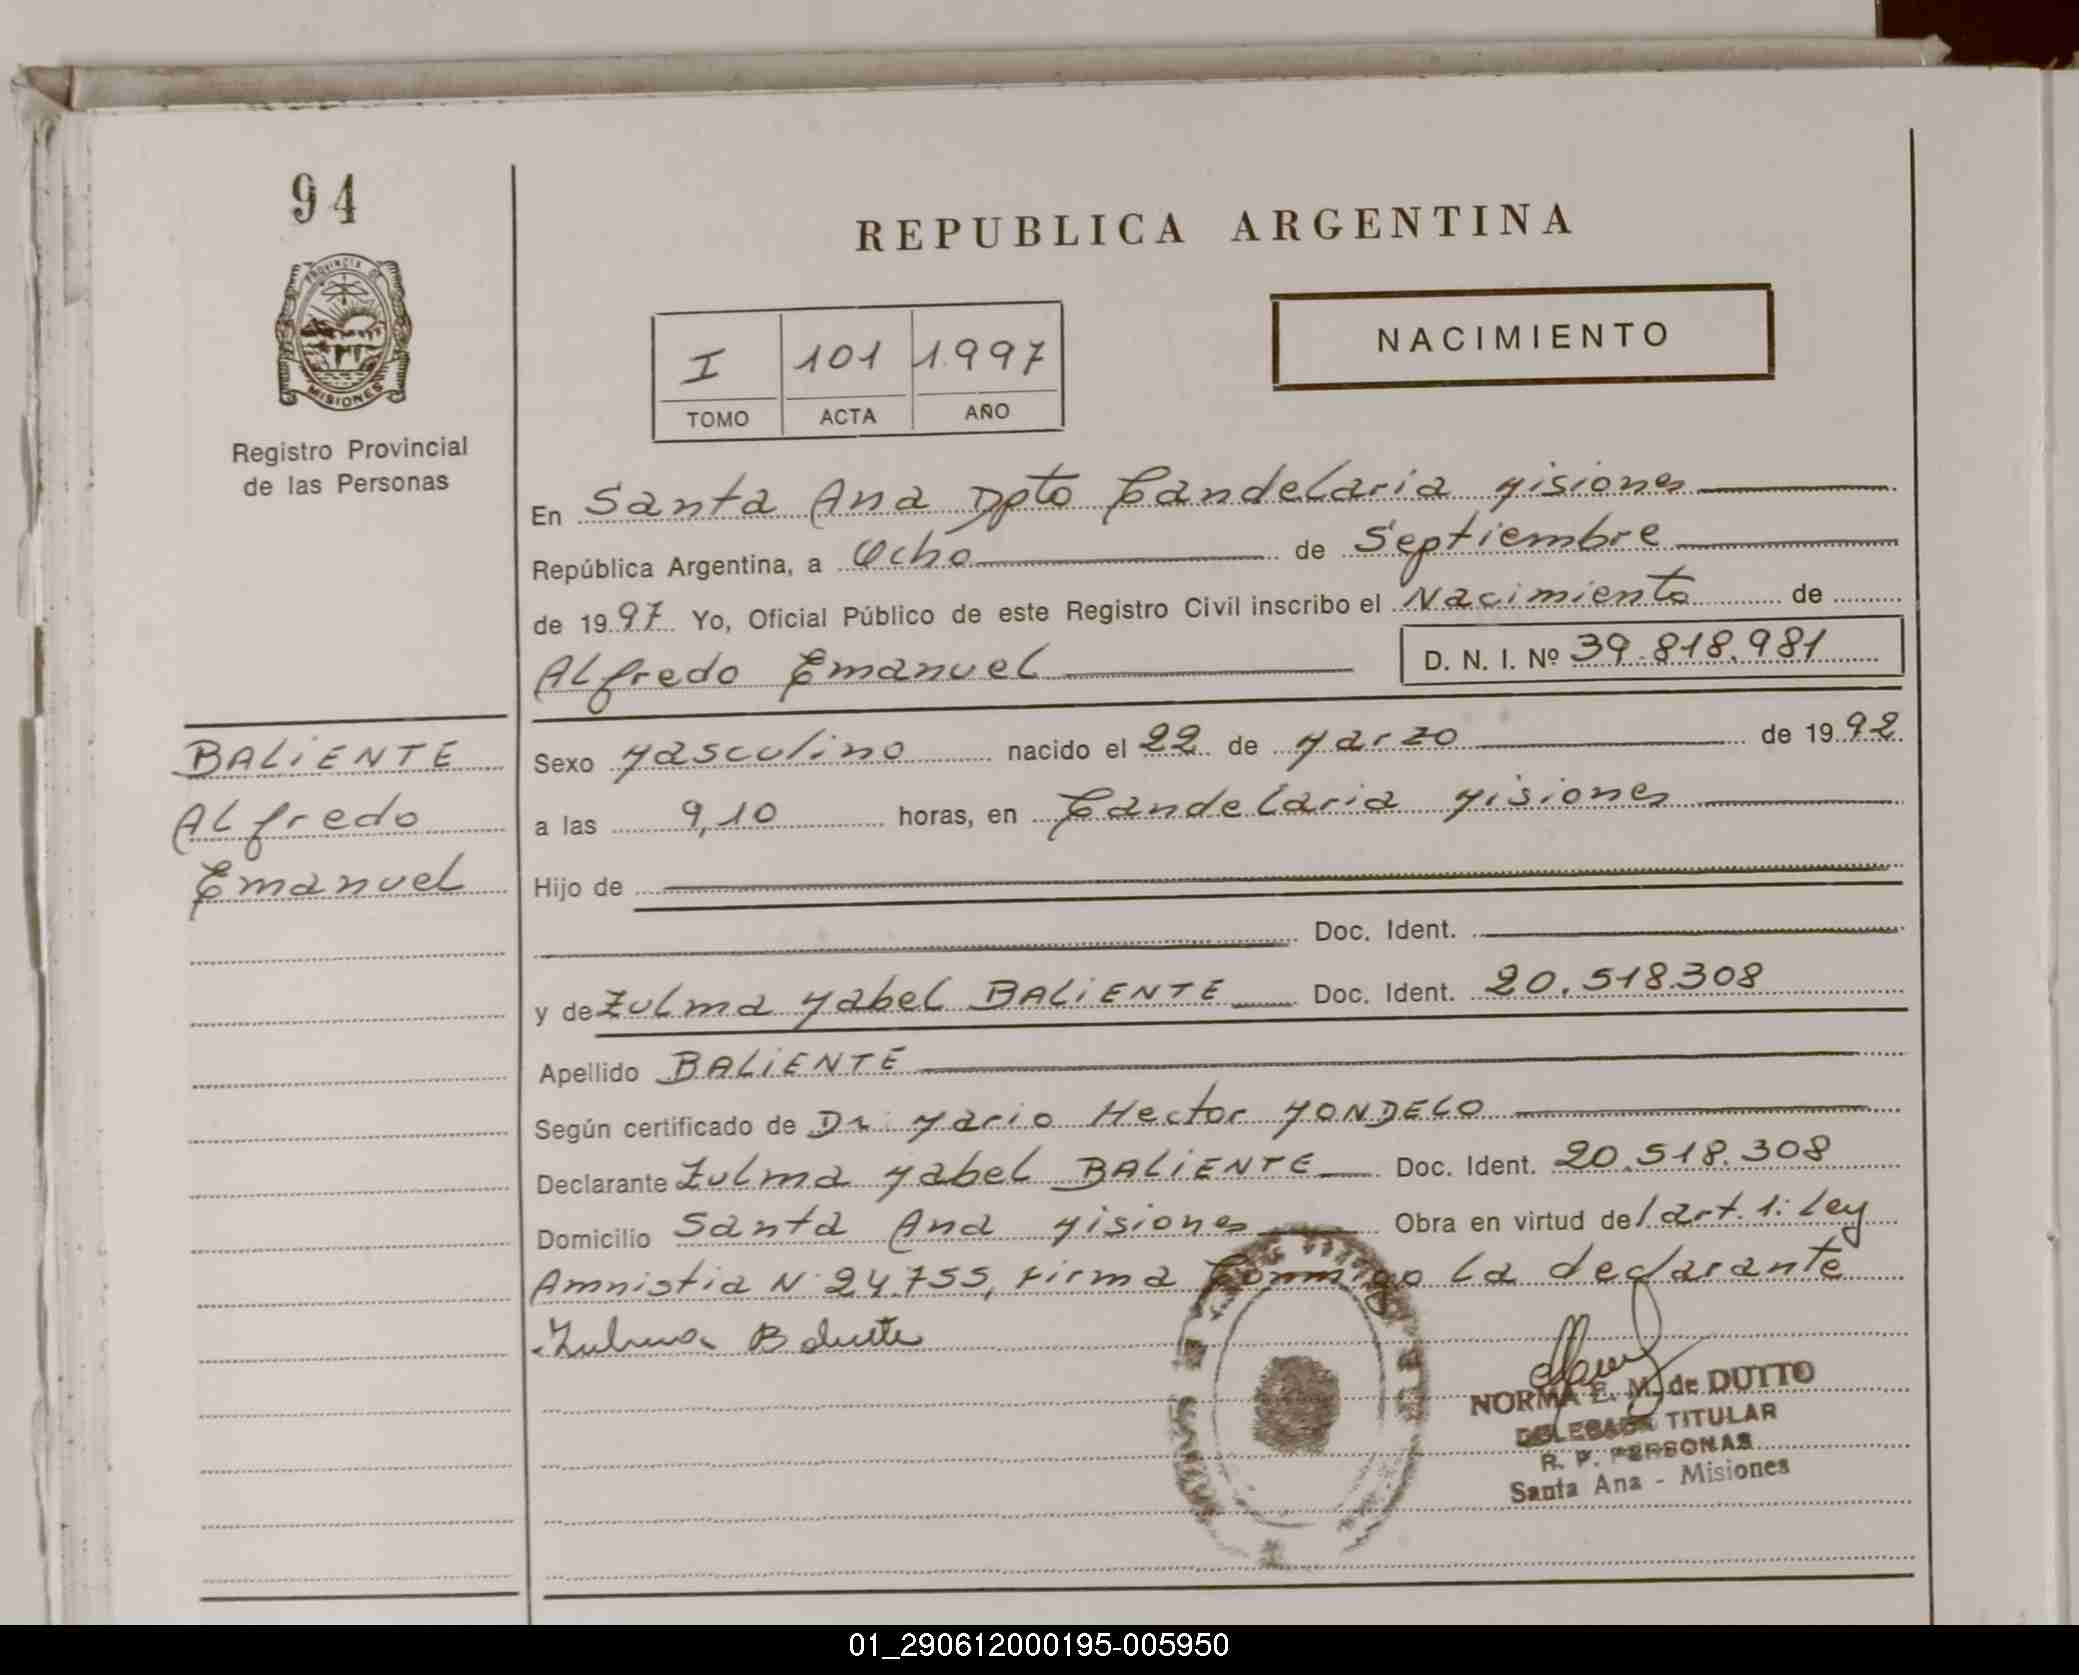 94
PROVINCIA DE
MISIONES
Registro Provincial
de las Personas
REPUBLICA ARGENTINA
I 101 1.997
TOMO ACTA AÑO
NACIMIENTO
En Santa Ana Dpto Candelaria Misiones
República Argentina, a Ocho de Septiembre
de 1997 Yo, Oficial Público de este Registro Civil inscribo el Nacimiento de
Alfredo Emanuel D. N. I. Nº 39.818.981
BALiENTE
Alfredo
Emanuel
Sexo Masculino nacido el 22 de Marzo de 1992
a las 9,10 horas, en Candelaria Misiones
Hijo de
Doc. Ident.
y de Zulma Mabel BALiENTE Doc. Ident. 20.518.308
Apellido BALiENTE
Según certificado de Dr. Mario Hector MONDELO
Declarante Zulma Mabel BALiENTE Doc. Ident. 20.518.308
Domicilio Santa Ana Misiones Obra en virtud del art. 1: Ley
Amnistia N: 24.755, Firma Conmigo la declarante
Zulma
NORMA E. M. de DUTTO
DELEGADA TITULAR
R. P. PERSONAS
Santa Ana - Misiones
01_290612000195-005950